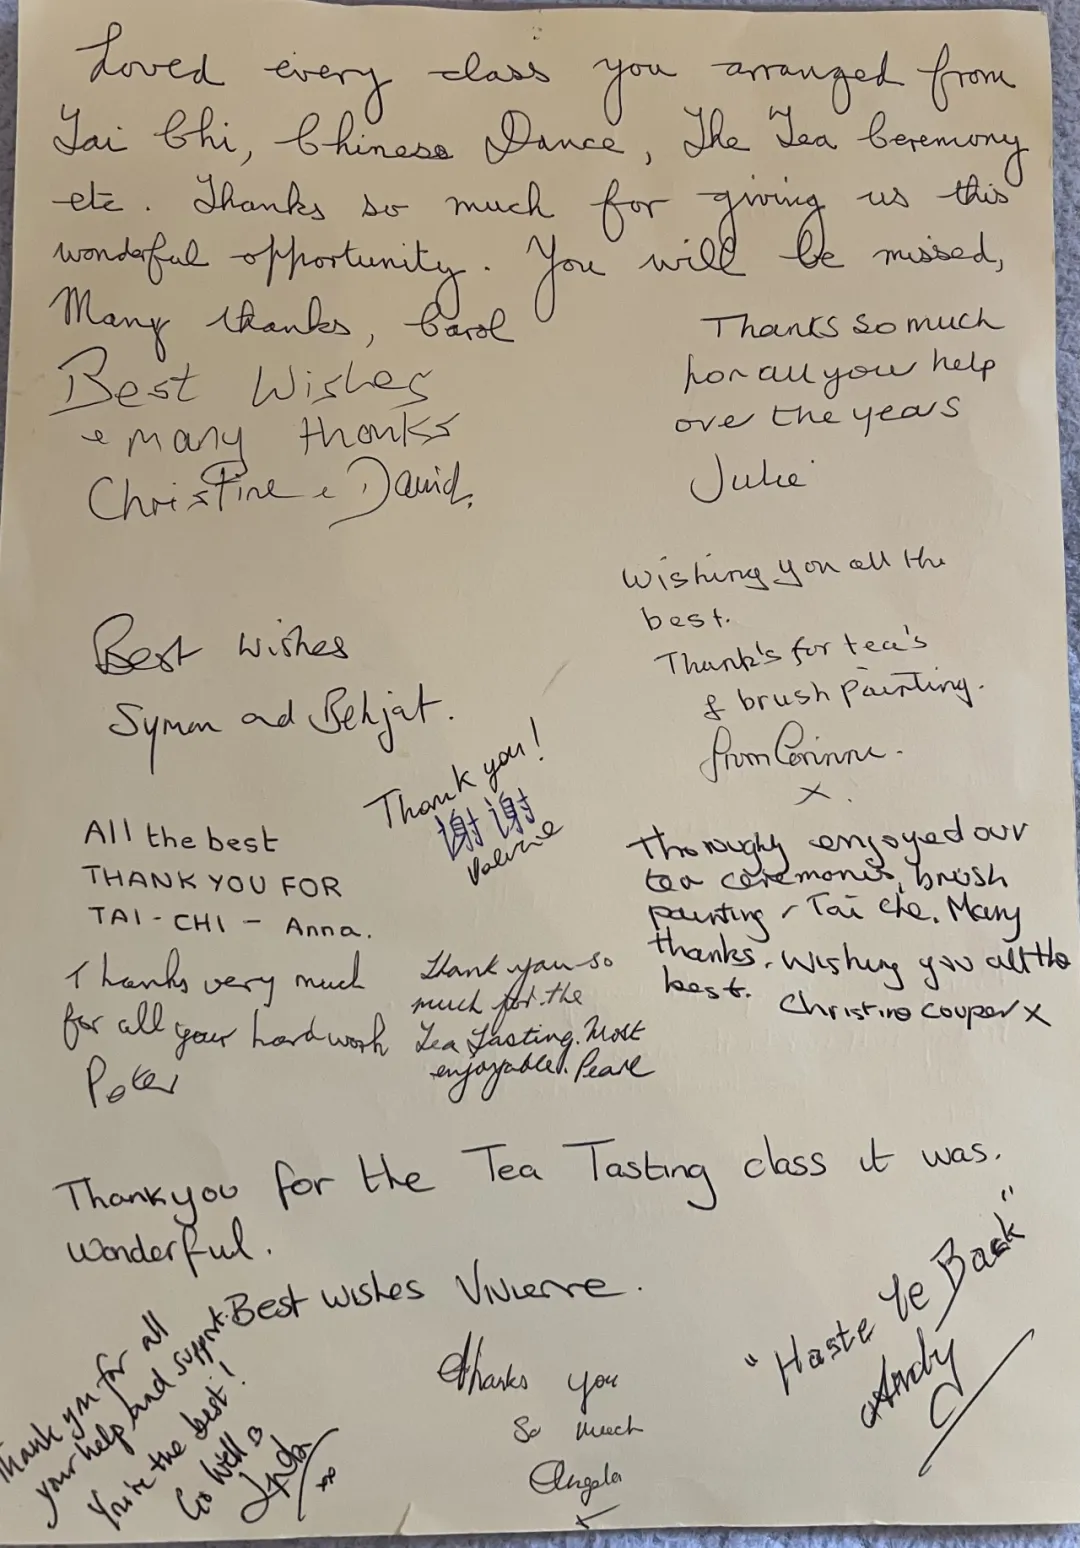 Loved every class you arranged from
Tai Chi, Chinese Dance, The Tea Ceremony
etc. Thanks so much for giving us this
wonderful opportunity. You will be missed,
Many thanks, Carol
Best Wishes
& many thanks
Christine & David.
Thanks so much
for all your help
over the years
Julie
Wishing you all the
best.
Thank's for tea's
& brush painting.
from Corinne.
x.
Best wishes
Symon and Behjat.
Thank you!
谢谢
Valerie
All the best
THANK YOU FOR
TAI-CHI - Anna.
Thoroughly enjoyed our
tea ceremonies, brush
painting & Tai che. Many
thanks. Wishing you all the
best.
Christine Couper x
Thanks very much
for all your hard work
Peter
Thank you so
much for the
Tea Tasting. Most
enjoyable. Pearl
Thank you for the Tea Tasting class it was.
wonderful.
Best wishes Vivienne.
Thank you for all
your help and support.
You're the best!
Go Well
Linda
xx
Thanks you
so much
Angela
x
"Haste Ye Back"
Andy